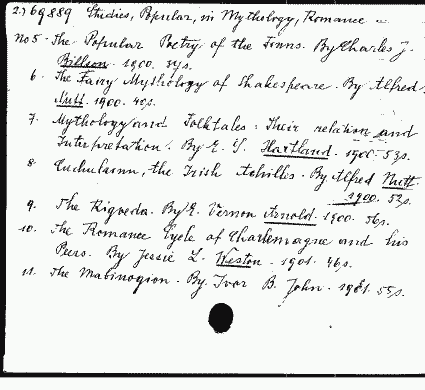 2769889 Studies, Popular, in Mythology, Romance
No 5 - The Popular Poetry of the Finns. By Charles J.
Billson. 1900.
6. The Fairy Mythology of Shakespeare. By Alfred
Nutt. 1900. 40p.
7. Mythology and Folktales: Their relation and
Interpretation. By E. S. Hartland. 1900. 53p.
8. Cuchulainn, the Irish Achilles. By Alfred Nutt
1900. 52p.
9. The Rigveda. By E. Vernon Arnold. 1900. 56p.
10. The Romance Cycle of Charlemagne and his
Peers. By Jessie L. Weston. 1901. 46p.
11. The Mabinogion. By Ivor B. John. 1901. 55p.